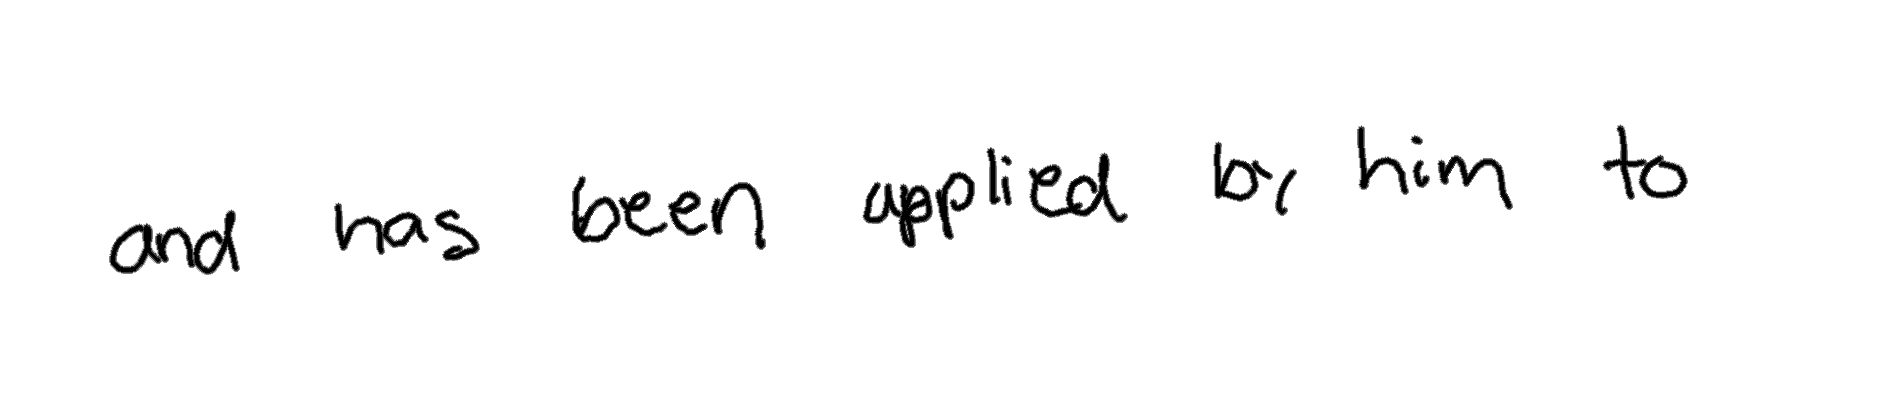 and has been applied by him to